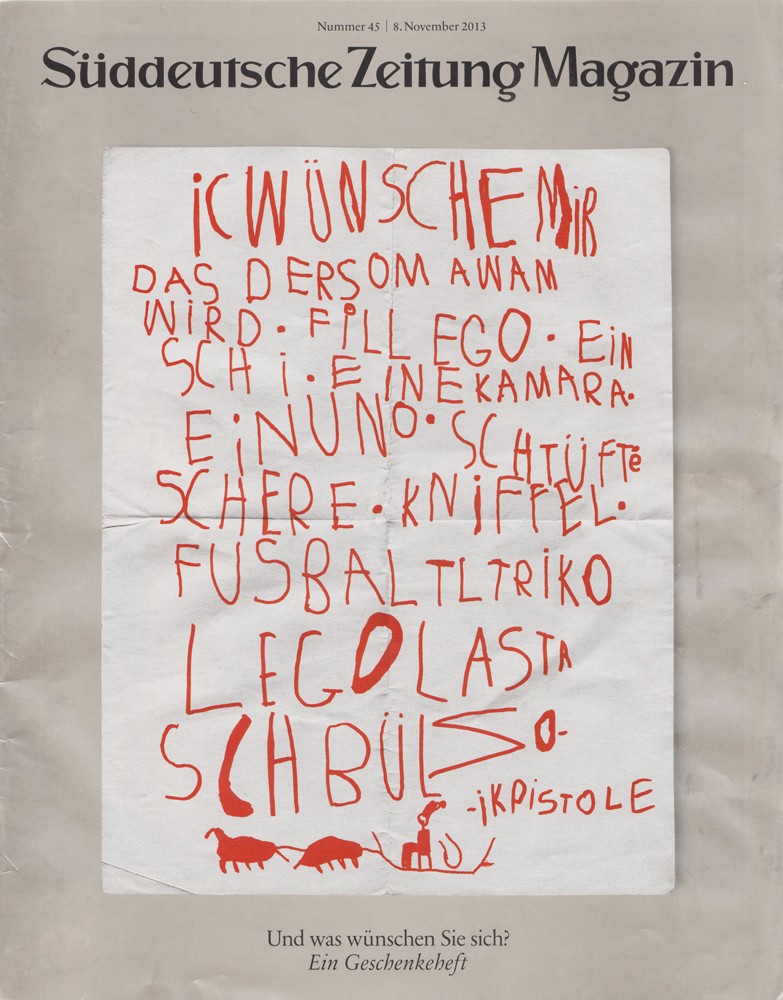 Nummer 45 | 8. November 2013
Süddeutsche Zeitung Magazin
iCWÜNSCHE MiR
DAS DERSOM AWAM
WiRD. FiLL EGO. EiN
SCH i. EiNEKAMARA.
EiNUNO. SCHTÜFTE
SCHERE. KNiFFEL.
FUSBALTLTRiKO
LEGOLASTA
SCHBÜLSO-
-iKPiSTOLE
Und was wünschen Sie sich?
Ein Geschenkeheft